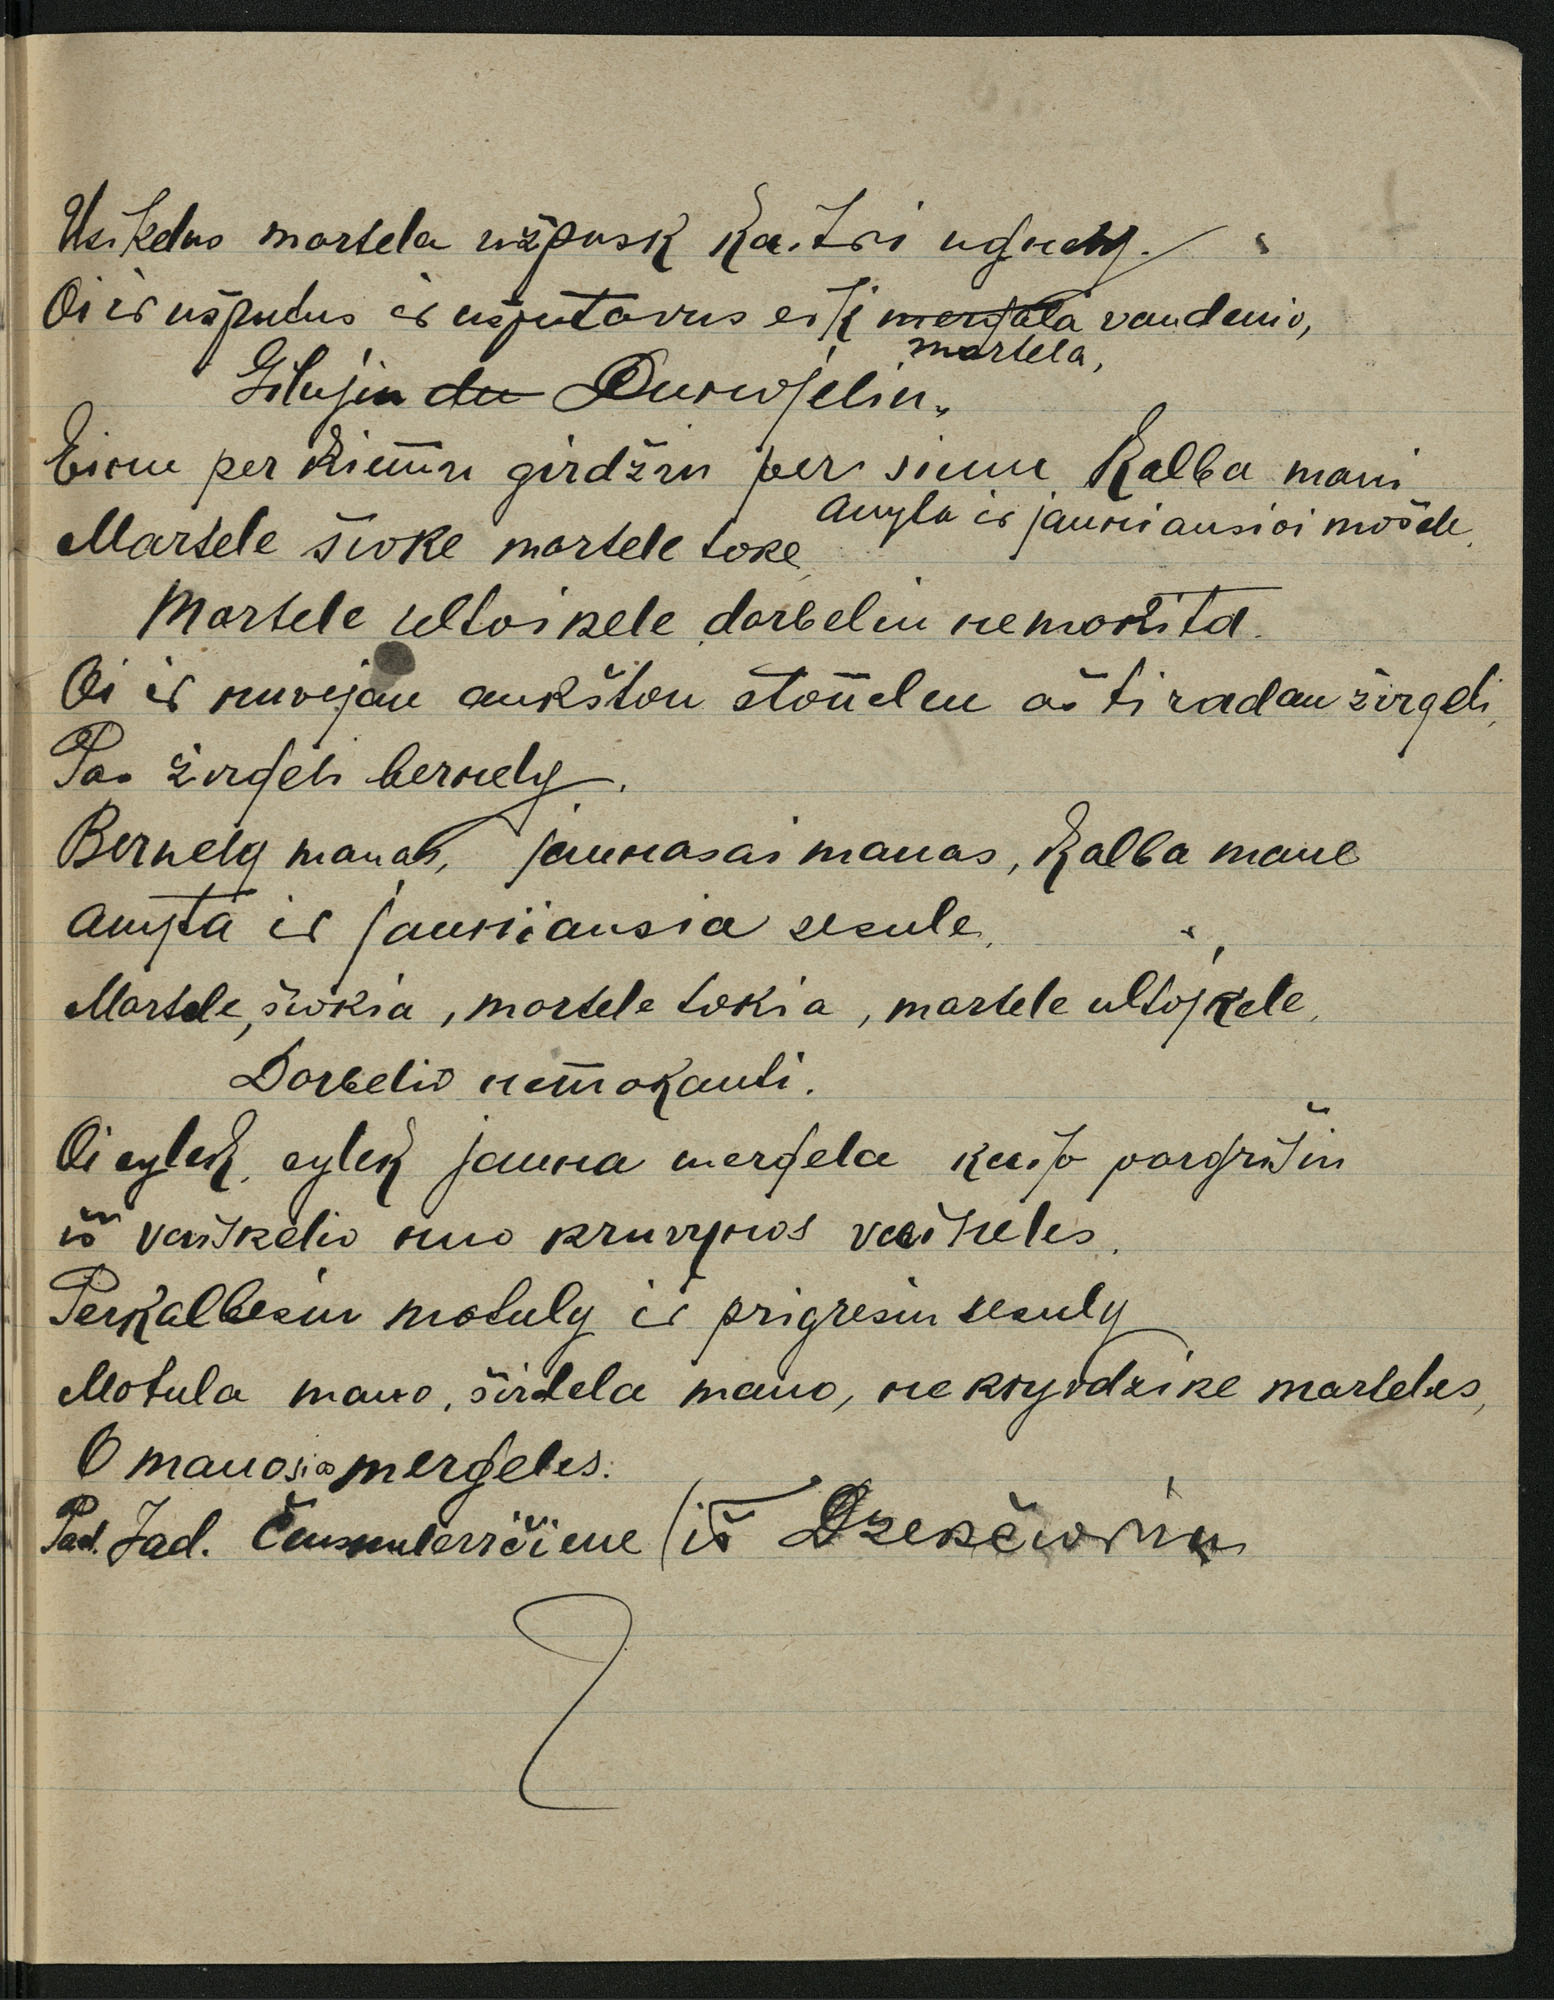 Usikelus martela užpusk kaitri ugnely.
Oi ir užputus ir užputavus eik mergala vandenio,
martela,
Gilujin du Dunojelin.
Einu per kiemu girdžiu per sienu kalba mani
anyta ir jauniausioi mošele.
Martele šioke martele toke
Martele ultoikele darbeliu nemokita.
Oi ir nuvejau aukšton stonelen aš ti radau žirgeli,
Pas žirgeli bernely.
Bernely manas, jaunasai manas, kalba mane
anyta ir jauniausia sesule.
Martele, šiokia, martele tokia, martele ultojkele,
Darbelio nemokanti.
Oi eylek, eylek jauna mergela kaip pargrišiu
iš vaiskelio nuo kruvynos vaiheles.
Perkalbesiu motuly ir prigresiu sesuly
Motula mano, širdela mano, ne kryvdzike marteles,
O manosios mergeles.
Pad. Jad. (iš